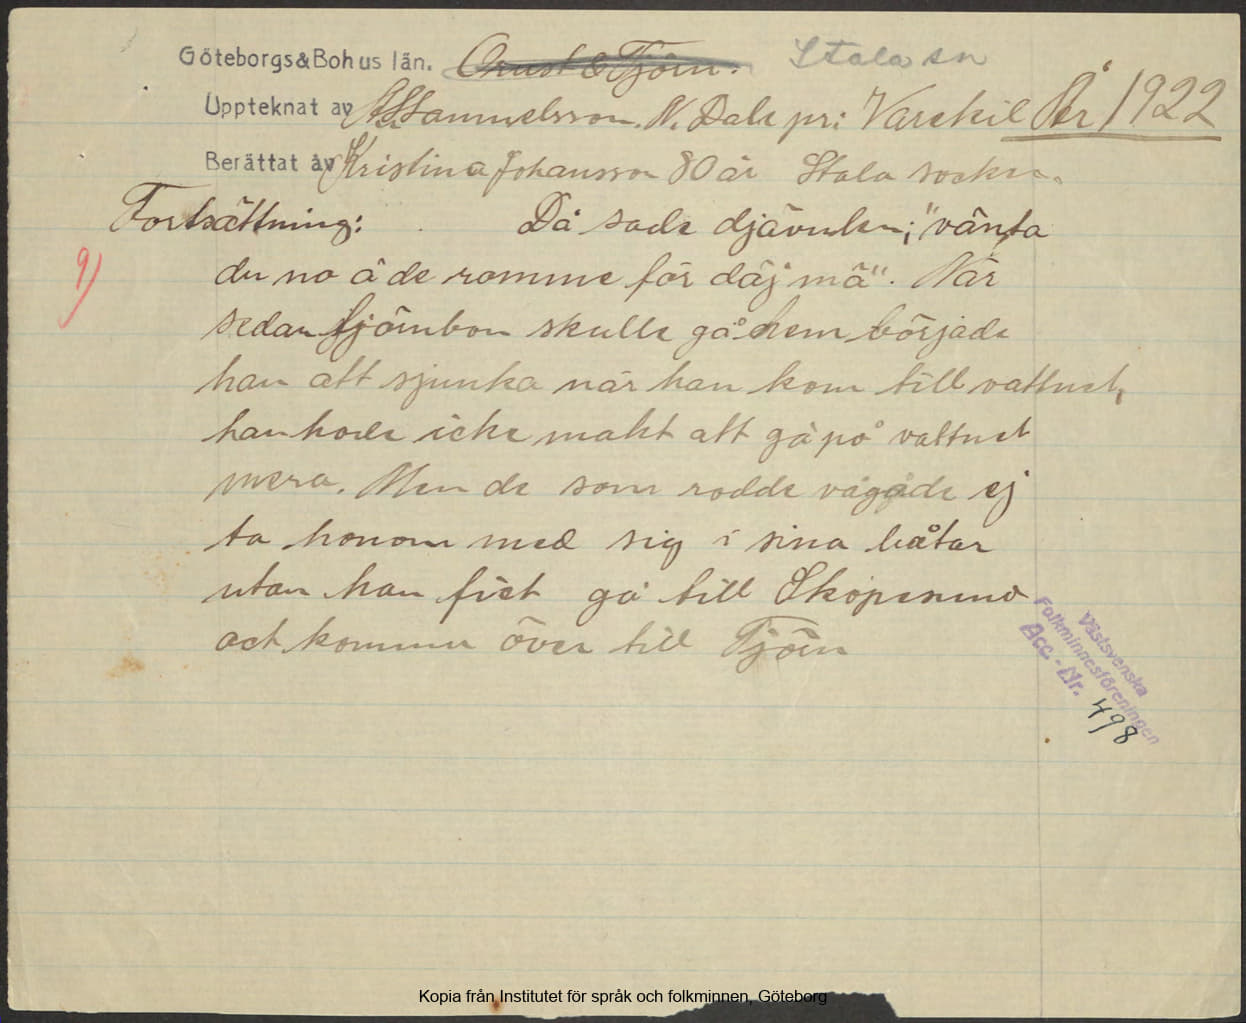 Göteborgs&Bohus län. Orust & Tjörn. Stala sn
Uppteknat av A.S. Samuelsson. N. Dale pr: Varekil År 1922
Berättat av Kristina Johansson 80 år Stala socken.
Fortsättning: Då sade djävulen; "vänta
9) du no å de romme för däj mä". När
sedan tjörnbon skulle gå hem började
han att sjunka när han kom till vattnet,
han hade icke makt att gå på vattnet
mera. Men de som rodde vågade ej
ta honom med sig i sina båtar
utan han fict gå till Skåpesund
oct komma över till Tjörn
Västsvenska
Folkminnesföreningen
Acc.-Nr. 498
Kopia från Institutet för språk och folkminnen, Göteborg